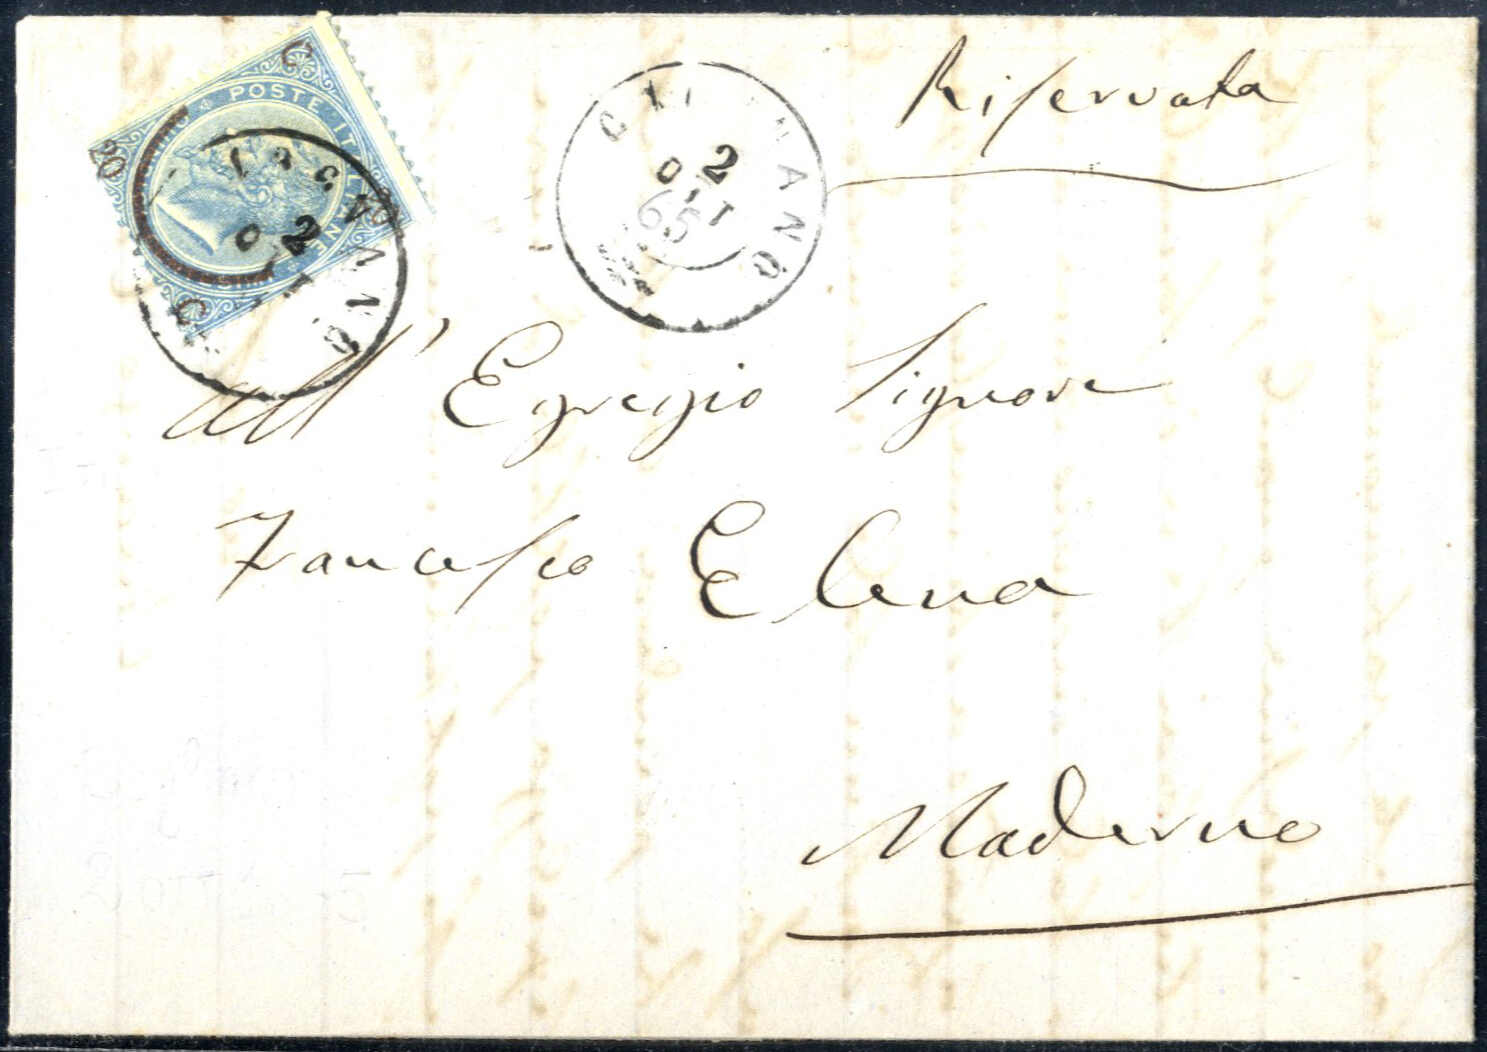 Riservata
C 20
POSTE ITALIANE
2
OTT
65
2
OTT
All' Egregio Signore
Francesco Elena
Maderno